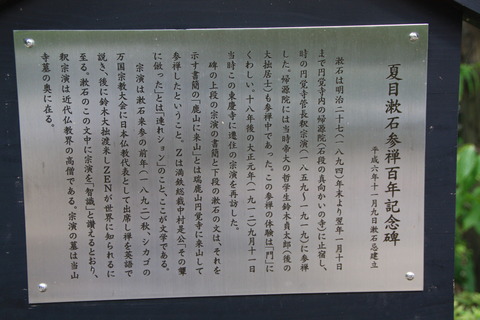 夏目漱石参禅百年記念碑
平成六年十一月九日漱石忌建立
漱石は明治二十七(一八九四)年末より翌年一月十日
まで円覚寺内の帰源院(石段の真向かいの寺)に止宿し、
時の円覚寺管長釈宗演(一八五九~一九一九)に参禅
した。帰源院には当時帝大の哲学生鈴木貞太郎(後の
大拙居士)も参禅中であった。この参禅の体験は「門」に
くわしい。十八年後の大正元年(一九一二)九月十一日
当時この東慶寺に遷住の宗演を再訪した。
碑の上段の宗演の書簡と下段の漱石の文は、それを
示す書簡の「鹿山に来山」とは瑞鹿山円覚寺に来山して
参禅したということ。Zは満鉄総裁中村是公「その顰
に倣った」とは「連れション」のこと、ここが文学である。
宗演は漱石来参の前年(一八九三)秋、シカゴの
万国宗教大会に日本仏教代表として出席し禅を英語で
説き、後に鈴木大拙渡米しZENが世界に知られるに
至る。漱石のこの文中に宗演を「智識」と讃えるとおり、
釈宗演は近代仏教界の高僧である。宗演の墓は当山
寺墓の奥に在る。